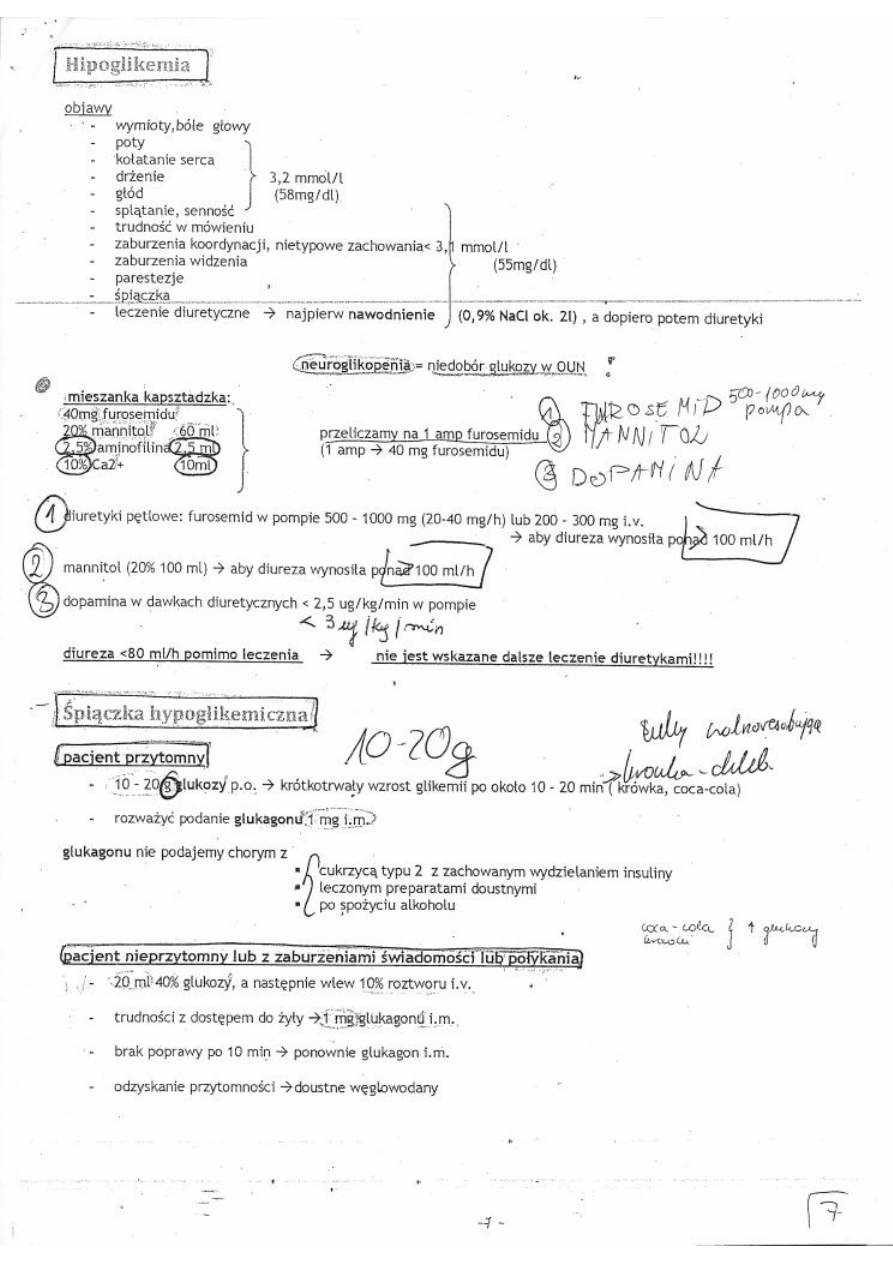 Hipoglikemia
objawy
- wymioty,bóle głowy
- poty
- kołatanie serca
- drżenie 3,2 mmol/l
- głód (58mg/dl)
- splątanie, senność
- trudność w mówieniu
- zaburzenia koordynacji, nietypowe zachowania< 3,1 mmol/l
- zaburzenia widzenia (55mg/dl)
- parestezje
- śpiączka
- leczenie diuretyczne → najpierw nawodnienie (0,9% NaCl ok. 2l) , a dopiero potem diuretyki
neuroglikopenia = niedobór glukozy w OUN !
mieszanka kapsztadzka:
40mg furosemidu
20% mannitol 60 ml
2,5% aminofilina 2,5 ml
10% Ca2+ 10ml
przeliczamy na 1 amp furosemidu
(1 amp → 40 mg furosemidu)
1 FUROSEMID 500-1000mg pompa
2 MANNITOL
3 DOPAMINA
1 diuretyki pętlowe: furosemid w pompie 500 - 1000 mg (20-40 mg/h) lub 200 - 300 mg i.v.
→ aby diureza wynosiła ponad 100 ml/h
2 mannitol (20% 100 ml) → aby diureza wynosiła ponad 100 ml/h
3 dopamina w dawkach diuretycznych < 2,5 ug/kg/min w pompie
< 3 ug/kg/min
diureza <80 ml/h pomimo leczenia → nie jest wskazane dalsze leczenie diuretykami!!!!
Śpiączka hypoglikemiczna
10-20g
pacjent przytomny
- 10 - 20 g glukozy p.o. → krótkotrwały wzrost glikemii po około 10 - 20 min ( krówka, coca-cola)
- rozważyć podanie glukagonu 1 mg i.m.
glukagonu nie podajemy chorym z
▪ cukrzycą typu 2 z zachowanym wydzielaniem insuliny
▪ leczonym preparatami doustnymi
▪ po spożyciu alkoholu
coca-cola
↑ glukozy
pacjent nieprzytomny lub z zaburzeniami świadomości lub połykania
- 20 ml 40% glukozy, a następnie wlew 10% roztworu i.v.
- trudności z dostępem do żyły → 1 mg glukagonu i.m.
- brak poprawy po 10 min → ponownie glukagon i.m.
- odzyskanie przytomności → doustne węglowodany
-7 -
7